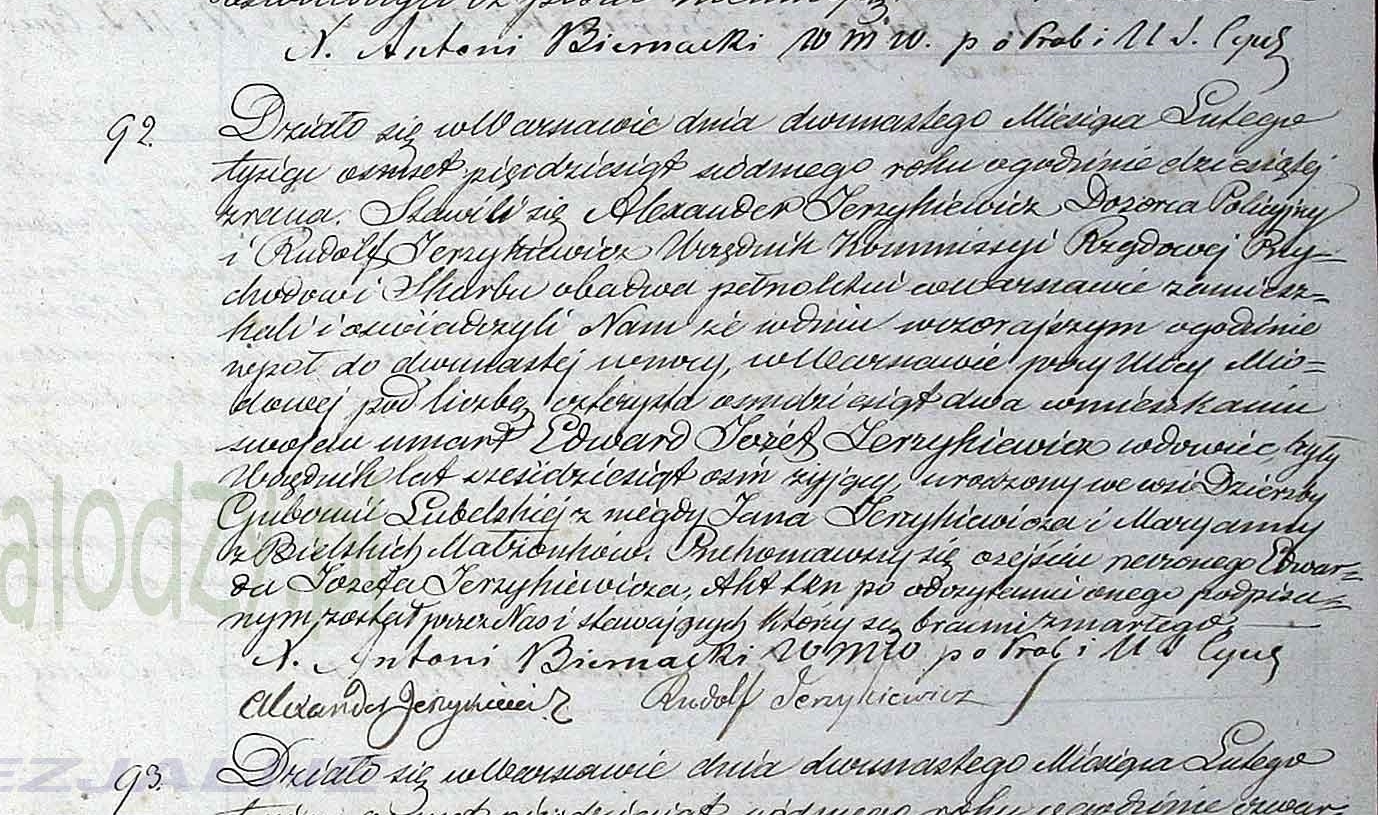 X. Antoni Biernacki W M W. p o Prob i U S. Cyw
92. Działo się w Warszawie dnia dwunastego Miesiąca Lutego
tysiąc osmset pięcdziesiąt siódmego roku o godzinie dziesiątej
zrana. Stawili się Alexander Jerzykiewicz Dozorca Policyjny
i Rudolf Jerzykiewicz Urzędnik Kommissyi Rządowej Przy-
chodow i Skarbu obadwa pełnoletni w Warszawie zamiesz-
kali i oswiadczyli Nam że w dniu wczorajszym o godzinie
wpół do dwunastej w nocy, w Warszawie przy Ulicy Mio-
dowej pod liczbą czterysta osmdziesiąt dwa w mieszkaniu
swojem umarł Edward Józef Jerzykiewicz wdowiec, były
Urzędnik lat szesćdziesiąt osm żyjący, urodzony we wsi Dzierzby
Gubernii Lubelskiej z niegdy Jana Jerzykiewicza i Maryanny
z Bielskich Małżonków. Przekonawszy się o zejściu rzeczonego Edwar-
da Józefa Jerzykiewicza, Akt ten po odczytaniu onego podpisa-
nym został przez Nas i stawających którzy są bracmi zmarłego
X. Antoni Biernacki W M W p o Prob i U S Cyw
Alexander Jerzykiewicz Rudolf Jerzykiewicz
93. Działo się w Warszawie dnia dwunastego Miesiąca Lutego
siódmego roku o godzinie czwar